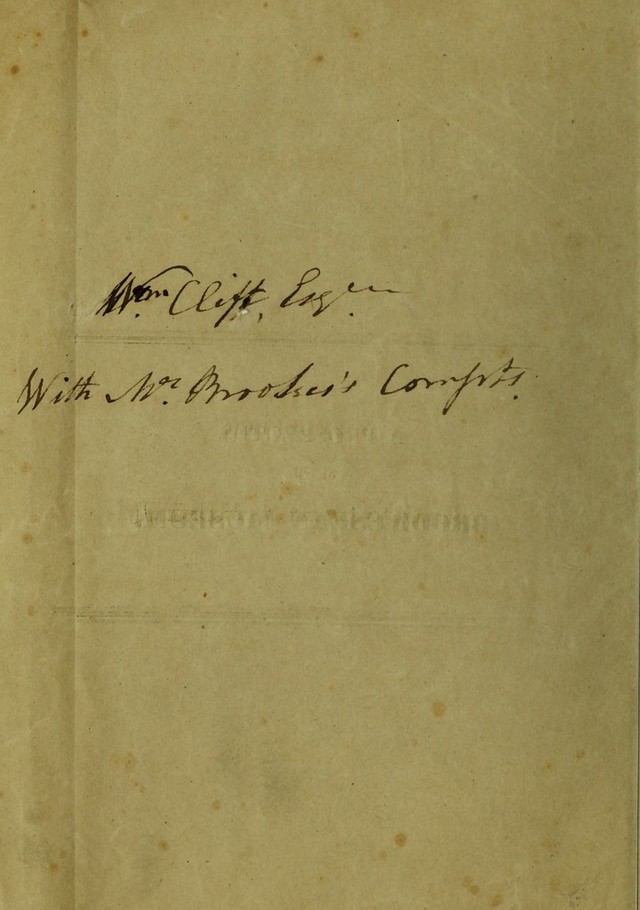 Wm. Clift, Esqre.
With Mr. Brookes's Compts.